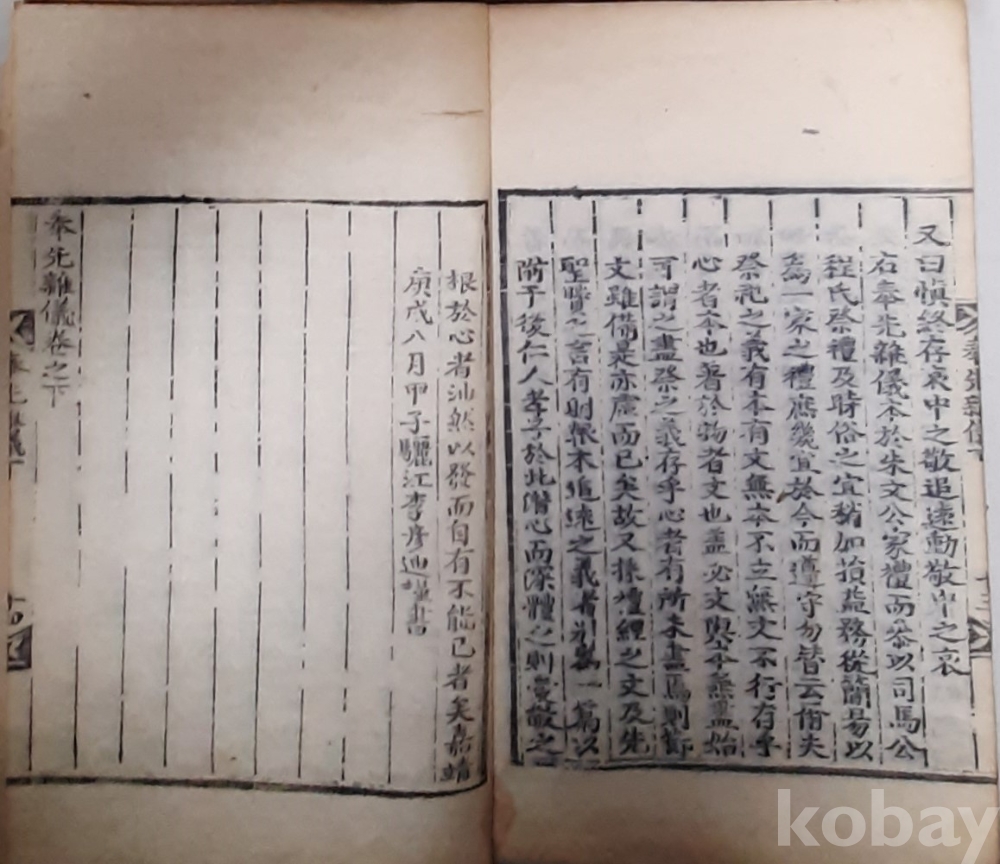 又曰愼終存哀中之敬追遠動敬中之哀
右奉先雜儀本於朱文公家禮而叅以司馬公
程氏祭禮及時俗之宜稍加損益務從簡易以
爲一家之禮庶幾宜於今而遵守勿替云爾夫
祭祀之義有本有文無本不立無文不行存乎
心者本也著於物者文也盖必文與本無盡始
可謂之盡祭之義存乎心者有所未盡焉則節
文雖備是亦虛而已矣故又採禮經之文及先
聖賢之言有則報本追遠之義者別爲一篇以
附于後仁人孝子於此潛心而深體之則愛敬之
奉先雜儀下
十三
根於心者油然以發而自有不能已者矣嘉靖
庚戌八月甲子驪江李彦迪謹書
奉先雜儀卷之下
奉先雜儀下
十四
kobay